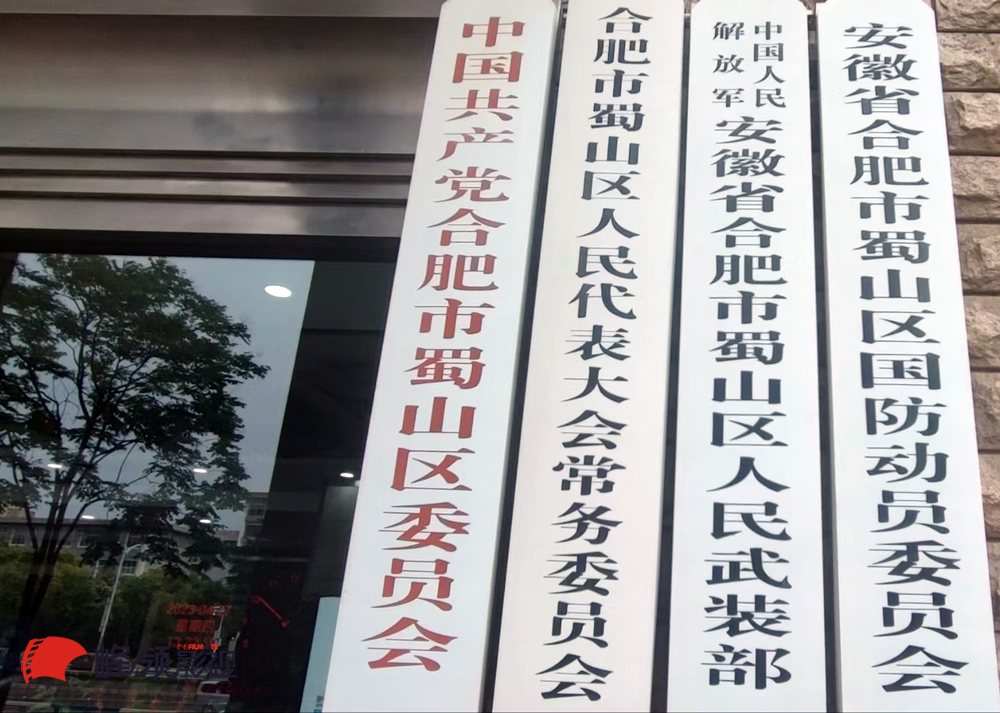 中国共产党合肥市蜀山区委员会
合肥市蜀山区人民代表大会常务委员会
中国人民
解放军
安徽省合肥市蜀山区人民武装部
安徽省合肥市蜀山区国防动员委员会
星期四